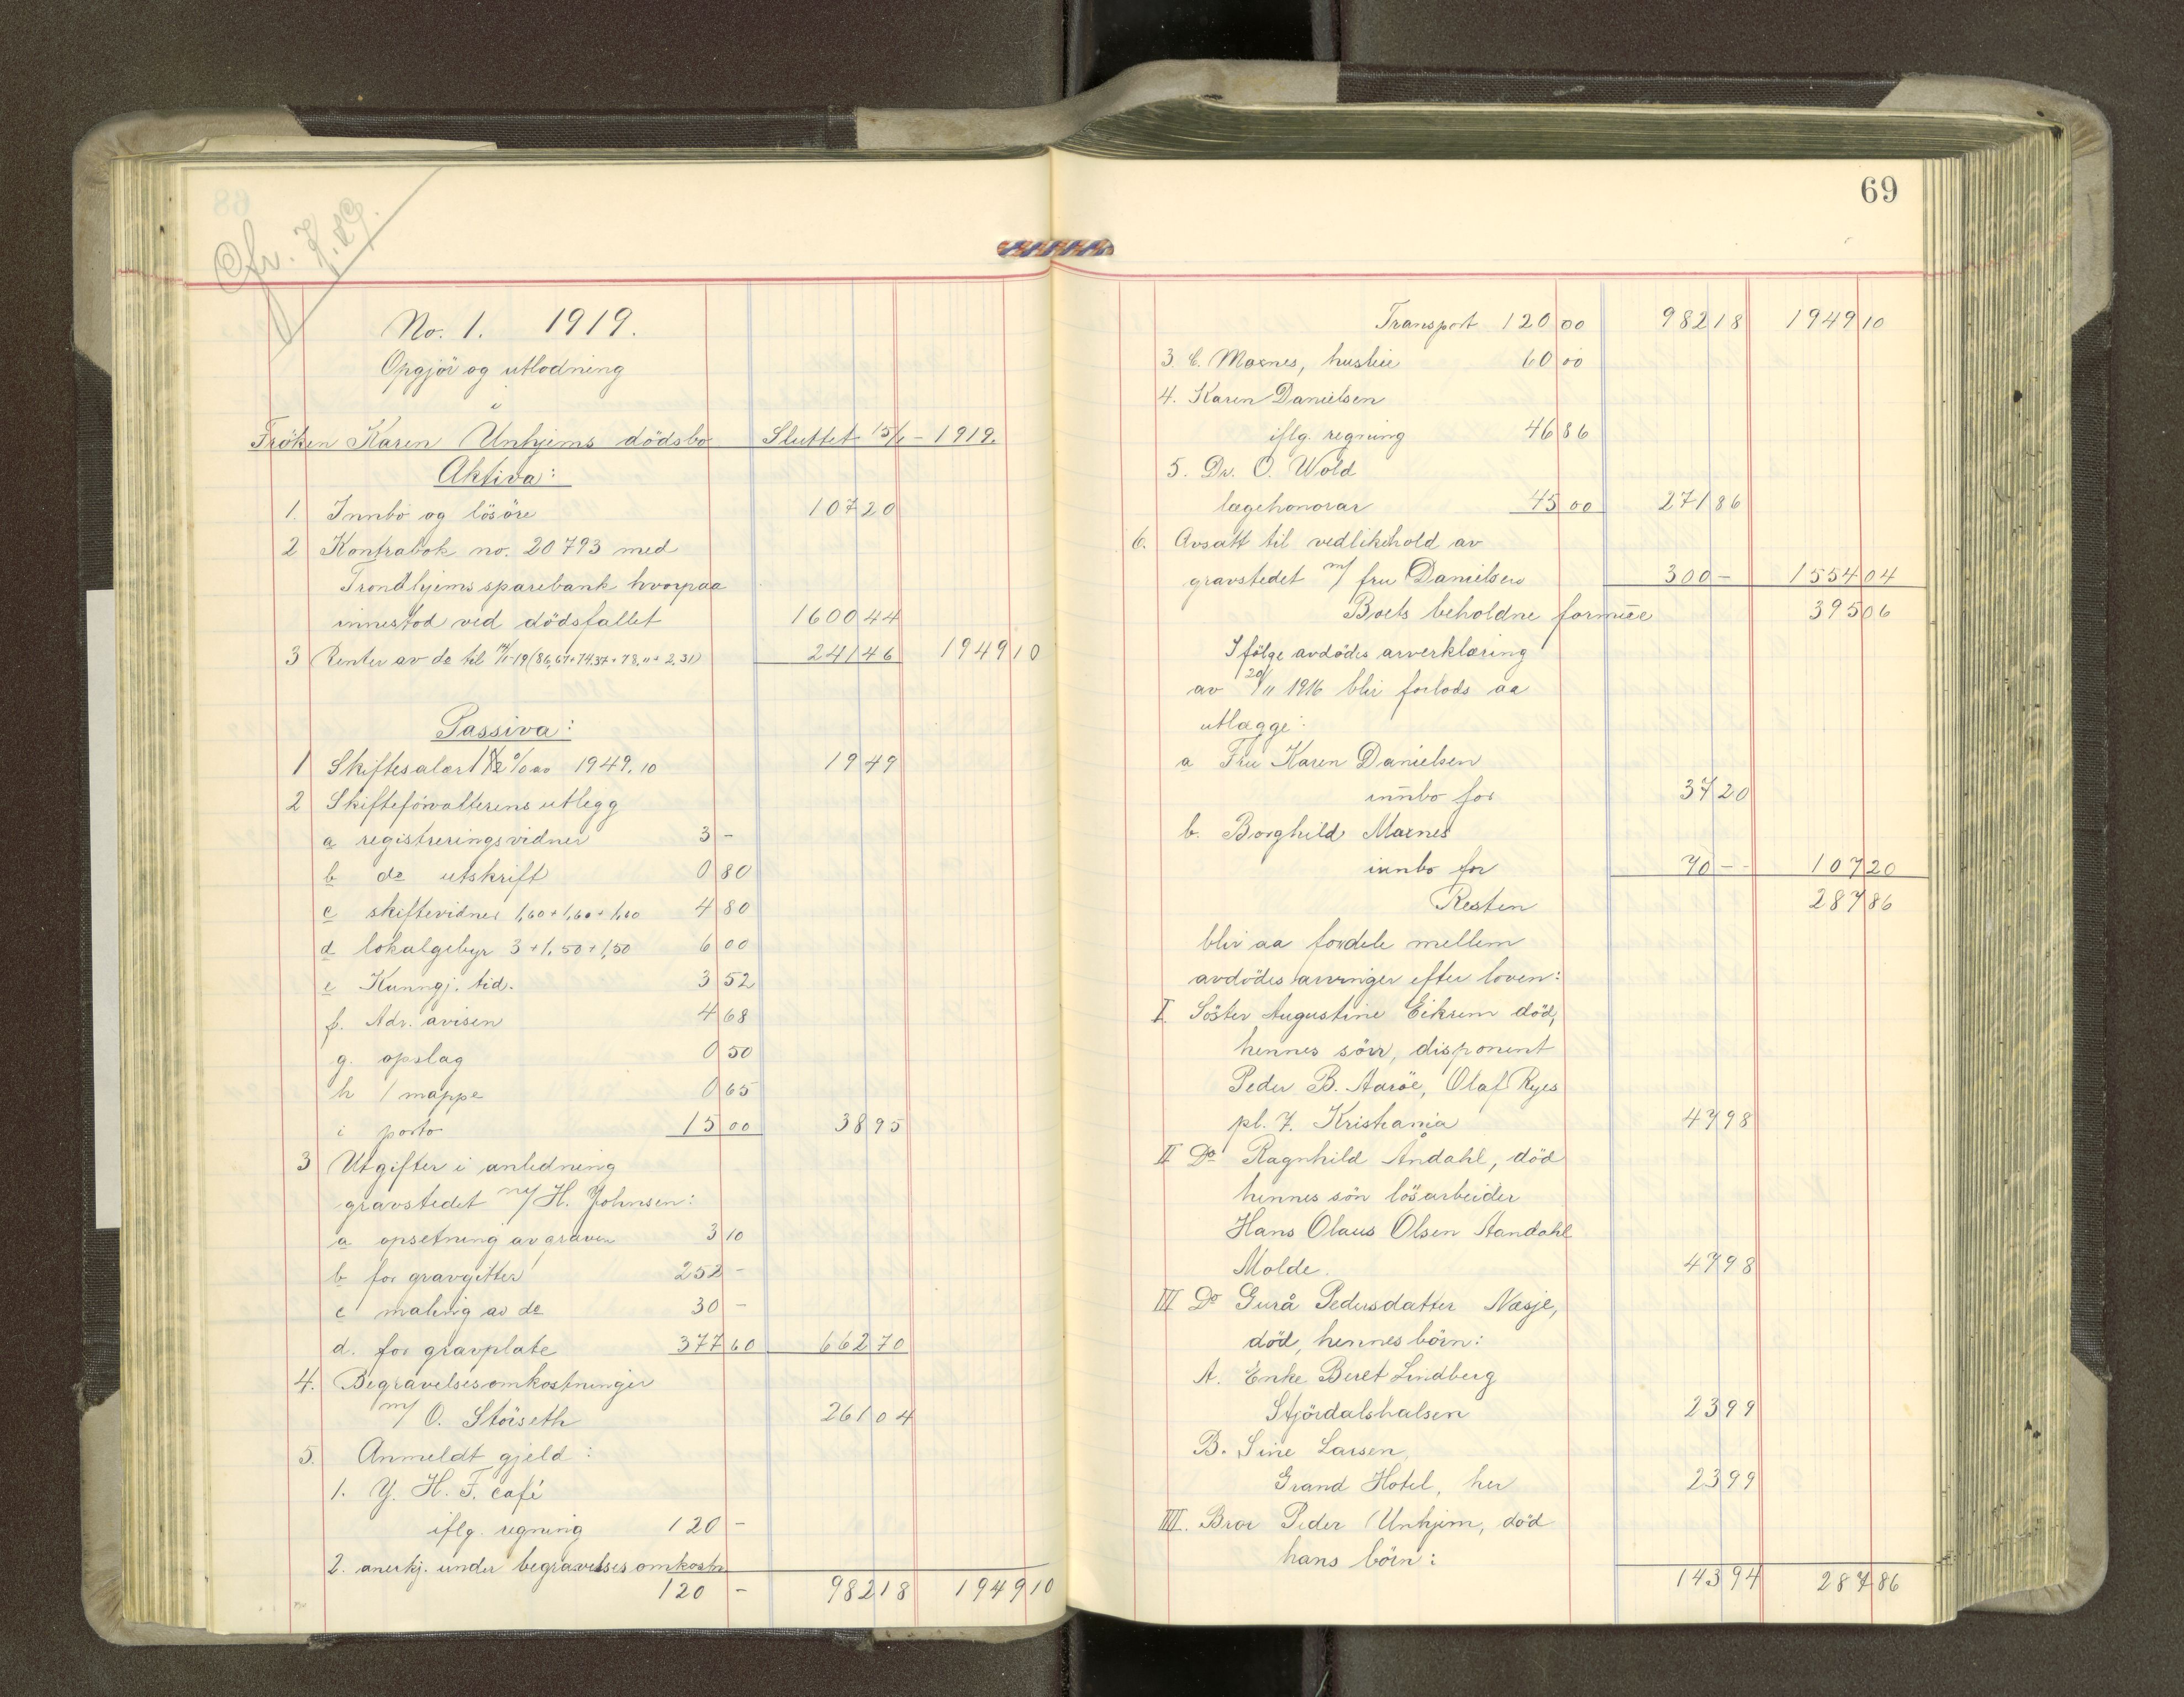 Cfr. J. 89.
No. 1. 1919.
Opgjör og utlodning
i
Fröken Karen Unhjems dödsbo Sluttet 15/1 - 1919.
Aktiva:
1. Innbo og lösöre 107 20
2 Kontrabok no. 20793 med
Trondhjems sparebank hvorpaa
innestod ved dödsfallet 1600 44
3 Renter av do til 19 (86,67+74,37+78,11+2,31) 241 46 1949 10
Passiva:
1 Skiftesalær 1 % av 1949.10 19 49
2 Skifteforvalterens utlegg
a registreringsvidner 3 -
b do utskrift 0 80
c skiftevidner 1,60+1,60+1,60 4 80
d lokalgebyr 3+1,50+1,50 6 00
e Kunngj. tid. 3 52
f. Adr. avisen 4 68
g. opslag 0 50
h 1 mappe 0 65
i porto 15 00 38 95
3 Utgifter i anledning
gravstedet v/ H. Johnsen:
a opsetning av graven 3 10
b for gravgitter 252 -
c maling av do 30 -
d. for gravplate 377 60 662 70
4. Begravelsesomkostninger
v/ O. Störseth 261 04
5. Anmeldt gjeld:
1. Y. H. F. café
iflg. regning 120 -
2. anerkj. under begravelsesomkostn
120 - 982 18 1949 10
69
Transport 120 00 982 18 1949 10
3. C. Marnes, husleie 60 00
4. Karen Danielsen
iflg. regning 46 86
5. Dr. O. Wold
lægehonorar 45 00 271 86
6. Avsatt til vedlikehold av
gravstedet v/ fru Danielsen 300 - 1554 04
Boets beholdne formue 395 06
Ifölge avdödes arverklæring
av 20/11 1916 blir forlods aa
utlægge:
a Fru Karen Danielsen
innbo for 37 20
b. Borghild Marnes
innbo for 70 - 107 20
Resten 287 86
blir aa fordele mellem
avdödes arvinger efter loven:
I. Söster Augustine Eikrem död,
hennes sönn, disponent
Peder B. Aaröe, Olaf Ryes
pl. 7. Kristiania 47 98
II Do Ragnhild Åndahl, död
hennes sön lösarbeider
Hans Olaus Olsen Aandahl
Molde. 47 98
III Do Gurå Pedersdatter Næsje,
död, hennes börn:
A. Enke Beret Lindberg
Stjördalshalsen 23 99
B. Sine Larsen,
Grand Hotel, her 23 99
IIII. Bror Peder Unhjem, död
hans börn:
143 94 287 86